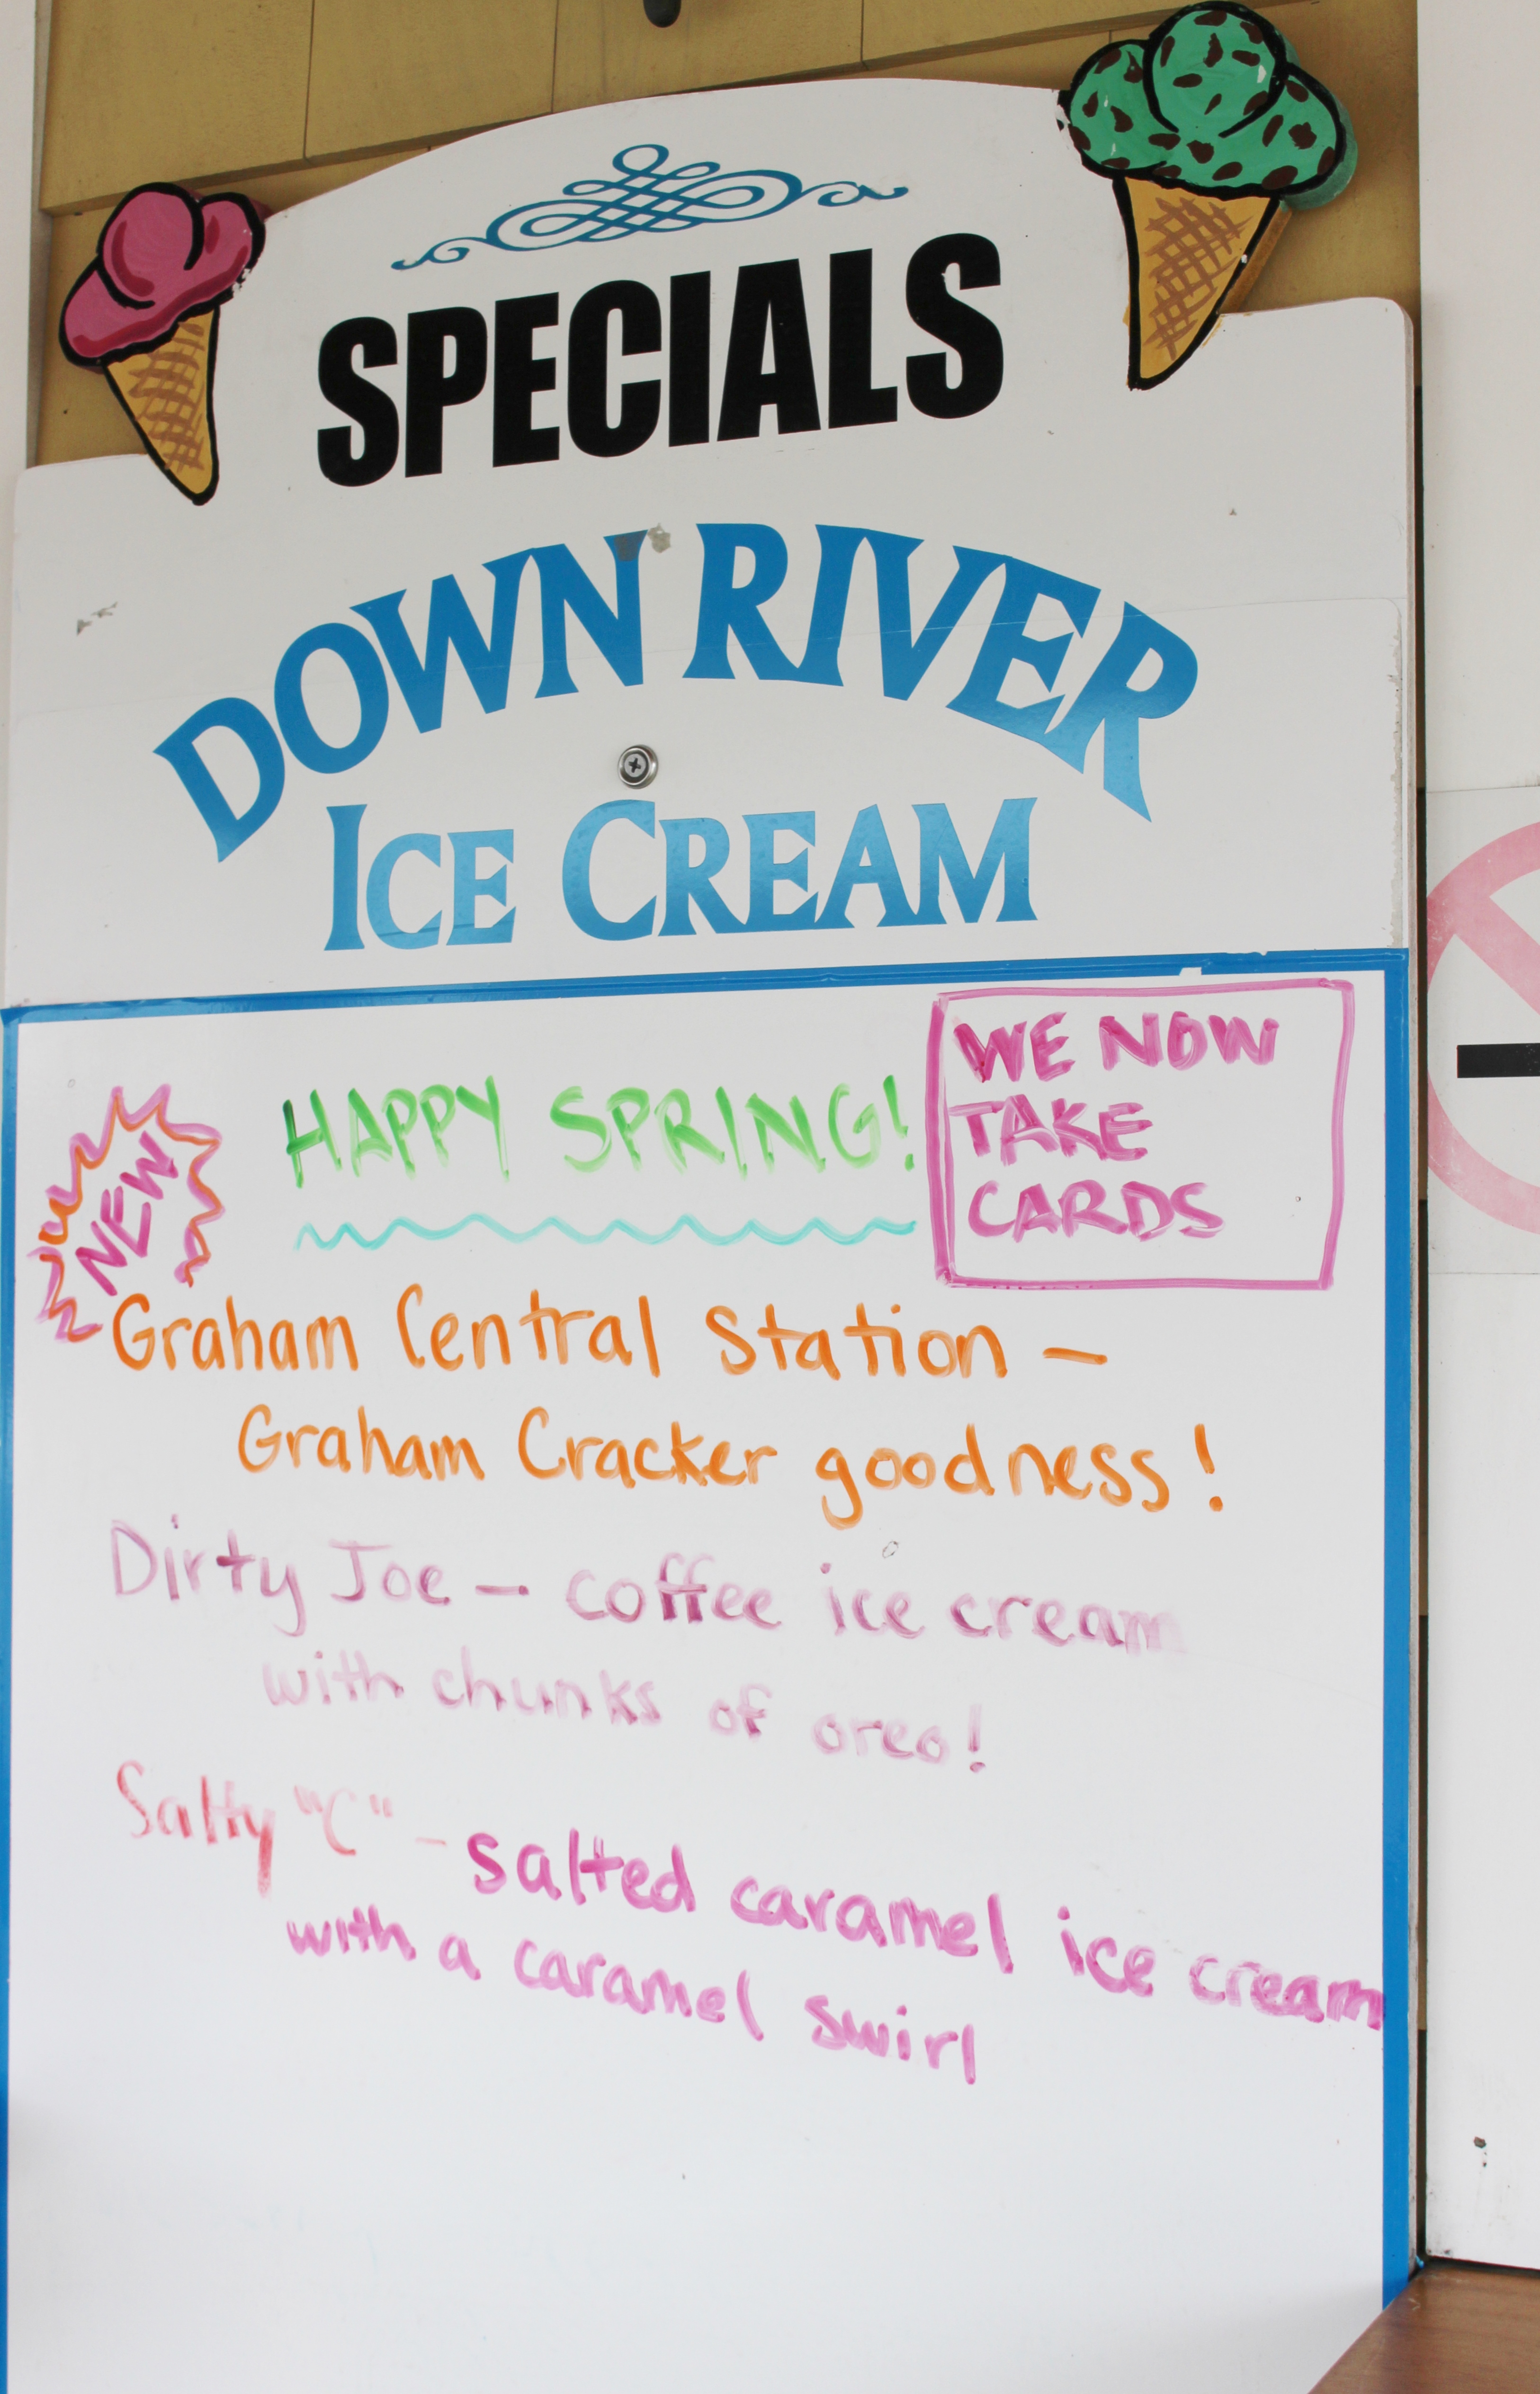 SPECIALS
DOWN RIVER
ICE CREAM
WE NOW
TAKE
CARDS
HAPPY SPRING!
NEW
Graham Central Station -
Graham Cracker goodness!
Dirty Joe - coffee ice cream
with chunks of oreo!
Salty "C" - salted caramel ice cream
with a caramel swirl